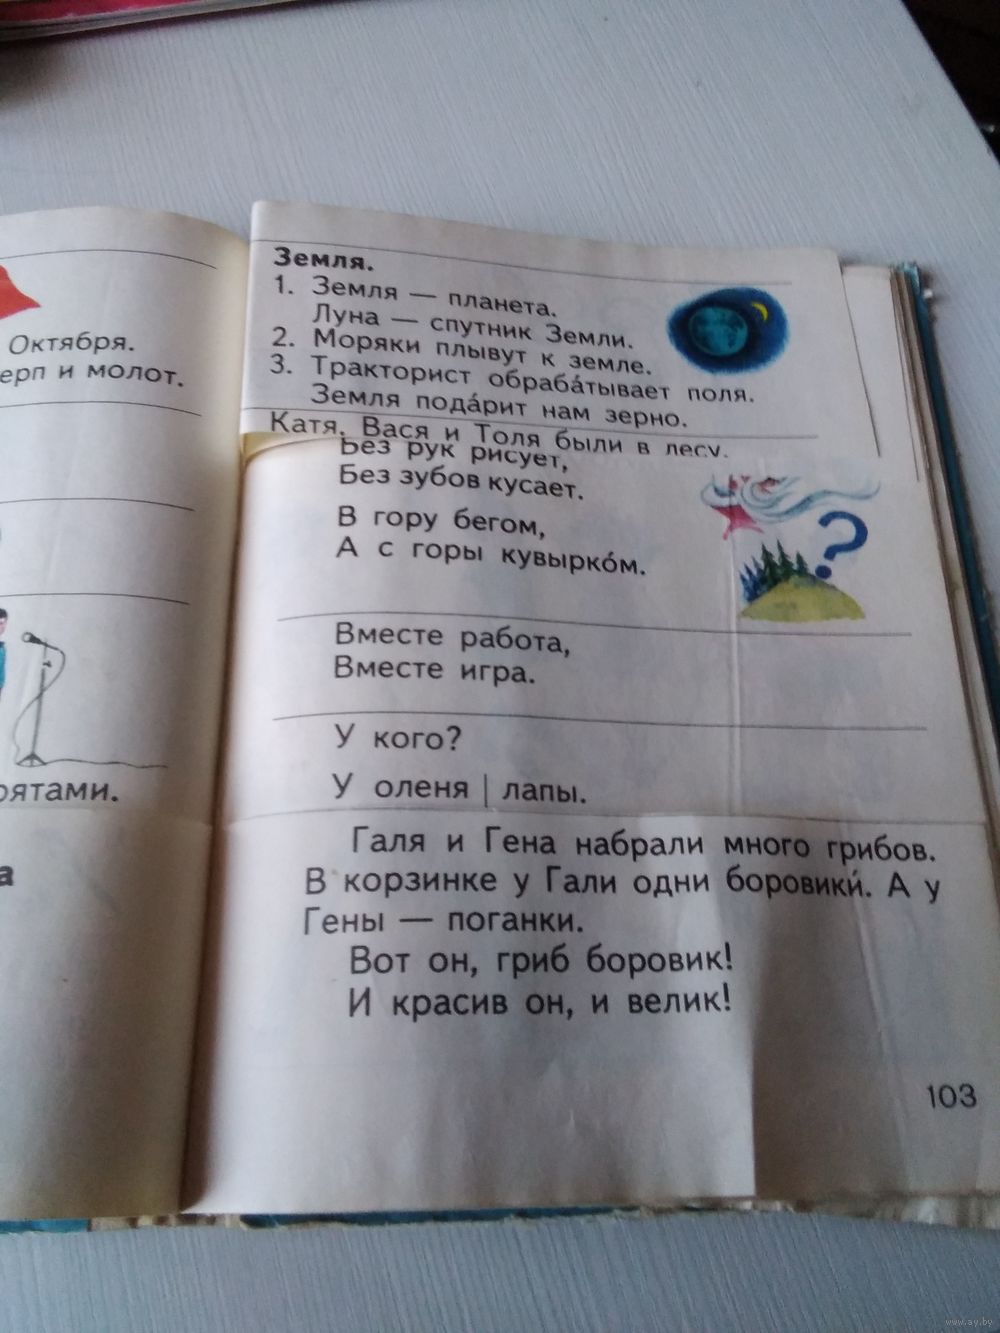 Октября.
ерп и молот.
рятами.
а
Земля.
1. Земля — планета.
Луна — спутник Земли.
2. Моряки плывут к земле.
3. Тракторист обраба́тывает поля.
Земля пода́рит нам зерно.
Катя, Вася и Толя были в лесу.
Без рук рисует,
Без зубов кусает.
В гору бегом,
А с горы кувырко́м.
?
Вместе работа,
Вместе игра.
У кого?
У оленя | лапы.
Галя и Гена набрали много грибов.
В корзинке у Гали одни боровики́. А у
Гены — поганки.
Вот он, гриб боровик!
И красив он, и велик!
103
www.ay.by